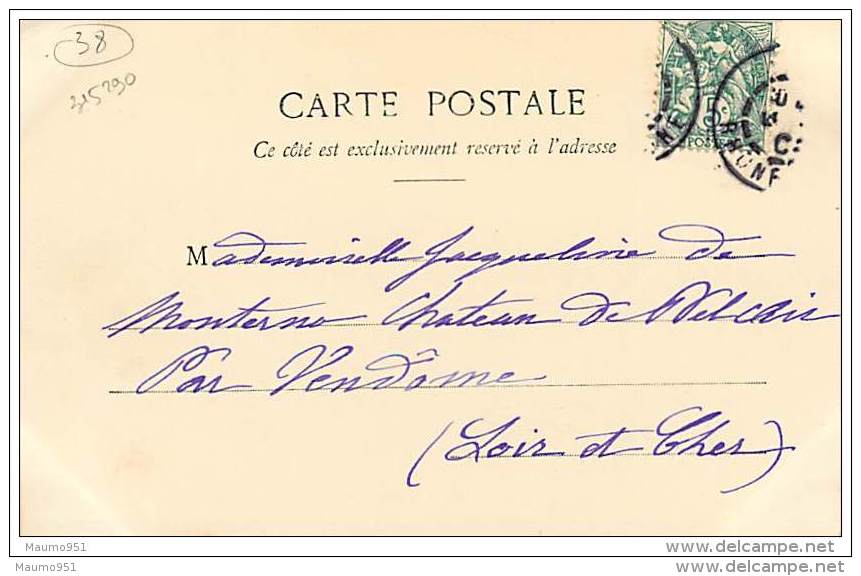 38
315290
CARTE POSTALE
Ce côté est exclusivement reservé à l'adresse
5
POST
Mademoiselle Jacqueline de
Monterno Chateau de Belair
Par Vendôme
(Loir et Cher)
Maumo951
Maumo951
www.delcampe.net
www.delcampe.net